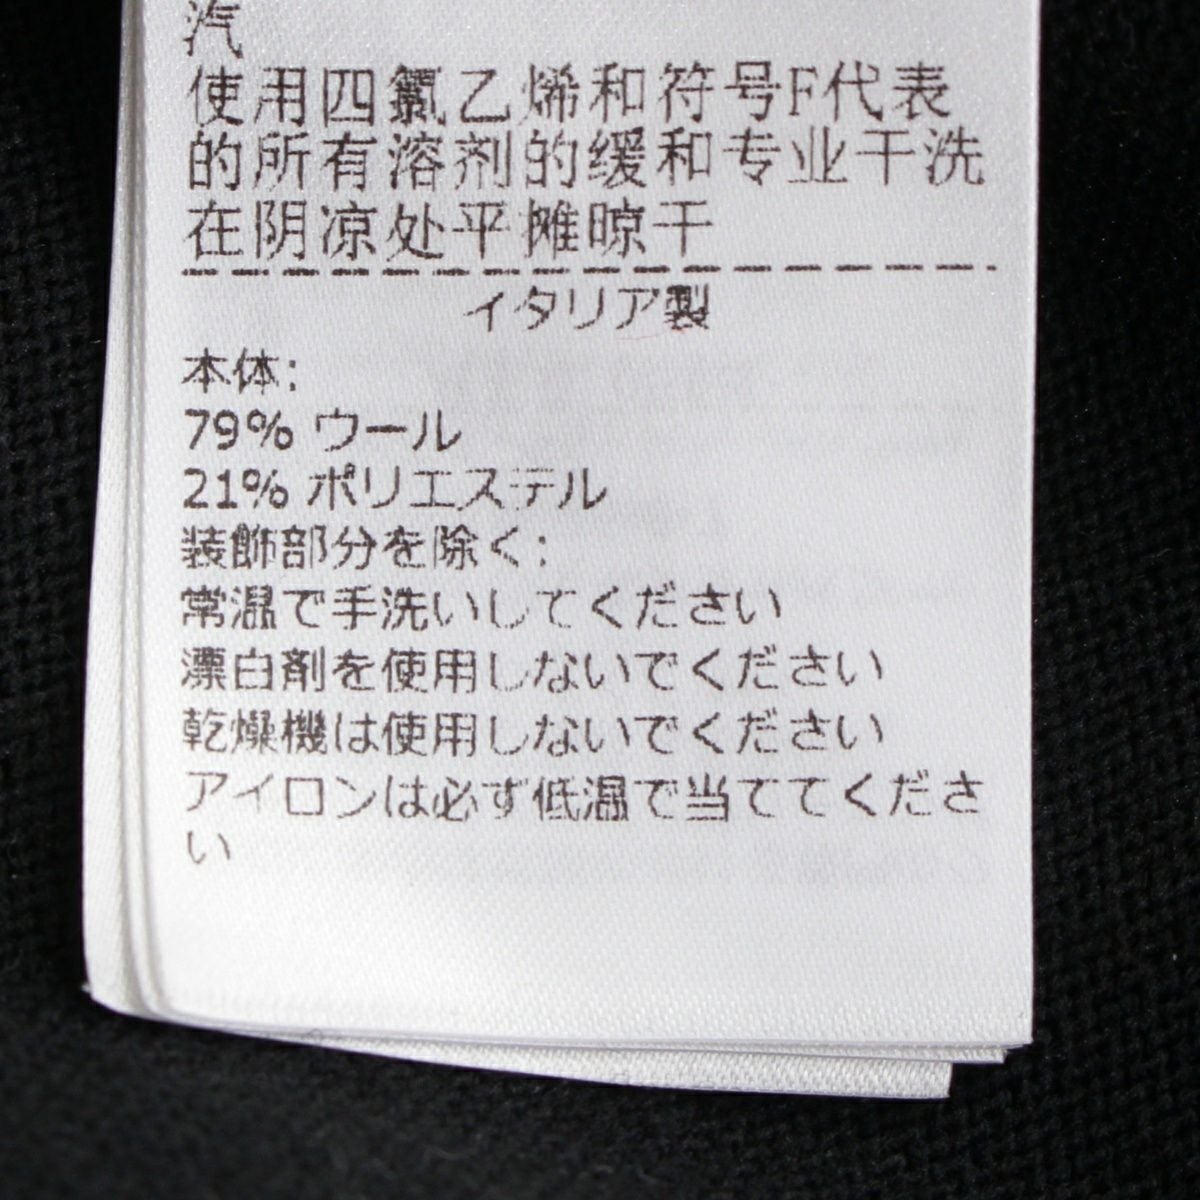 汽
使用四氯乙烯和符号F代表
的所有溶剂的缓和专业干洗
在阴凉处平摊晾干
イタリア製
本体:
79% ウール
21% ポリエステル
装飾部分を除く:
常温で手洗いしてください
漂白剤を使用しないでください
乾燥機は使用しないでください
アイロンは必ず低温で当ててくださ
い